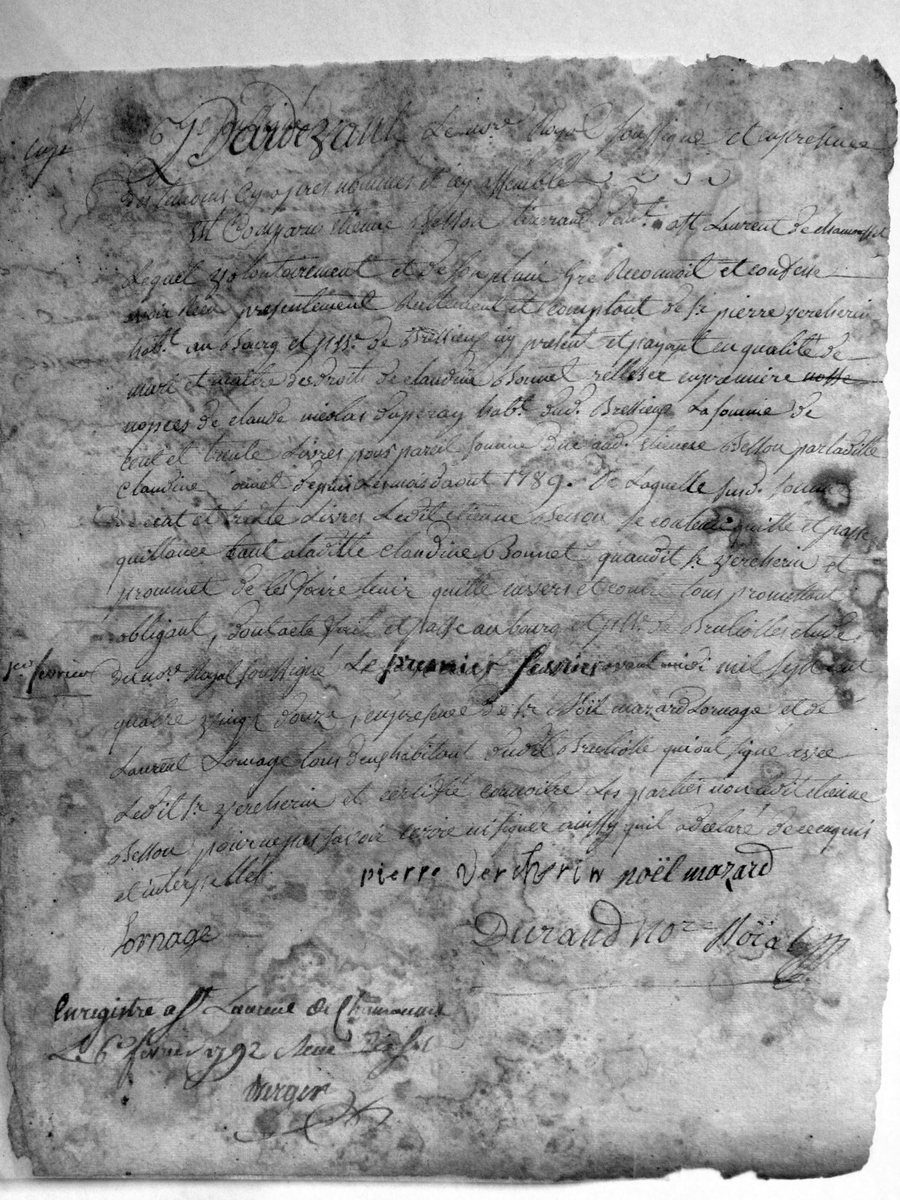 Pardevant Le nore Royal soussigné et en presence
des temoins cy apres nommés et icy assemblé
Est Comparu Etienne Besson habt. a st Laurent de chamousset
Lequel volontairement et de son plain Gré Reconnoit et confesse
avoir Recu presentement Reellement et comptant de sr pierre vercherin
habt. au Bourg et psse. de Bressieux icy present et payant en qualité de
mary et maitre des droits de claudine Bonnet en premiere
nopces de claude nicolas duperay habt. dud. Bressieux La somme de
cent et trente Livres pour pareil somme due aud. Etienne Besson par laditte
claudine depuis Le mois daout 1789. De Laquelle susd. somme
de cent et trente Livres Ledit etienne Besson se contente quitte et passe
quittance tant a laditte claudine Bonnet quaudit sr vercherin et
prommet de les faire tenir quitte envers et contre tous promettant
obligant, dont acte fait et passé au bourg et psse. de Brullioles etude
du nore Royal soussigné Le premier fevrier avant midi mil sept cent
1er fevrier
quatre vingt douze, en presence de sr Noël mazard Lornage et de
Laurent Lornage tous deux habitant dudit Brulliole qui ont signé avec
Ledit sr vercherin et certiffié connoitre Les parties non ledit etienne
Besson pour ne pas savoir ecrire ni signer ainssy quil a declaré de ce enquis
et interpellé
pierre vercherin noël mazard
Lornage
Durand nore Roial
Enregistré a st Laurent de Chamousset
Le 6e fevrier 1792
verger